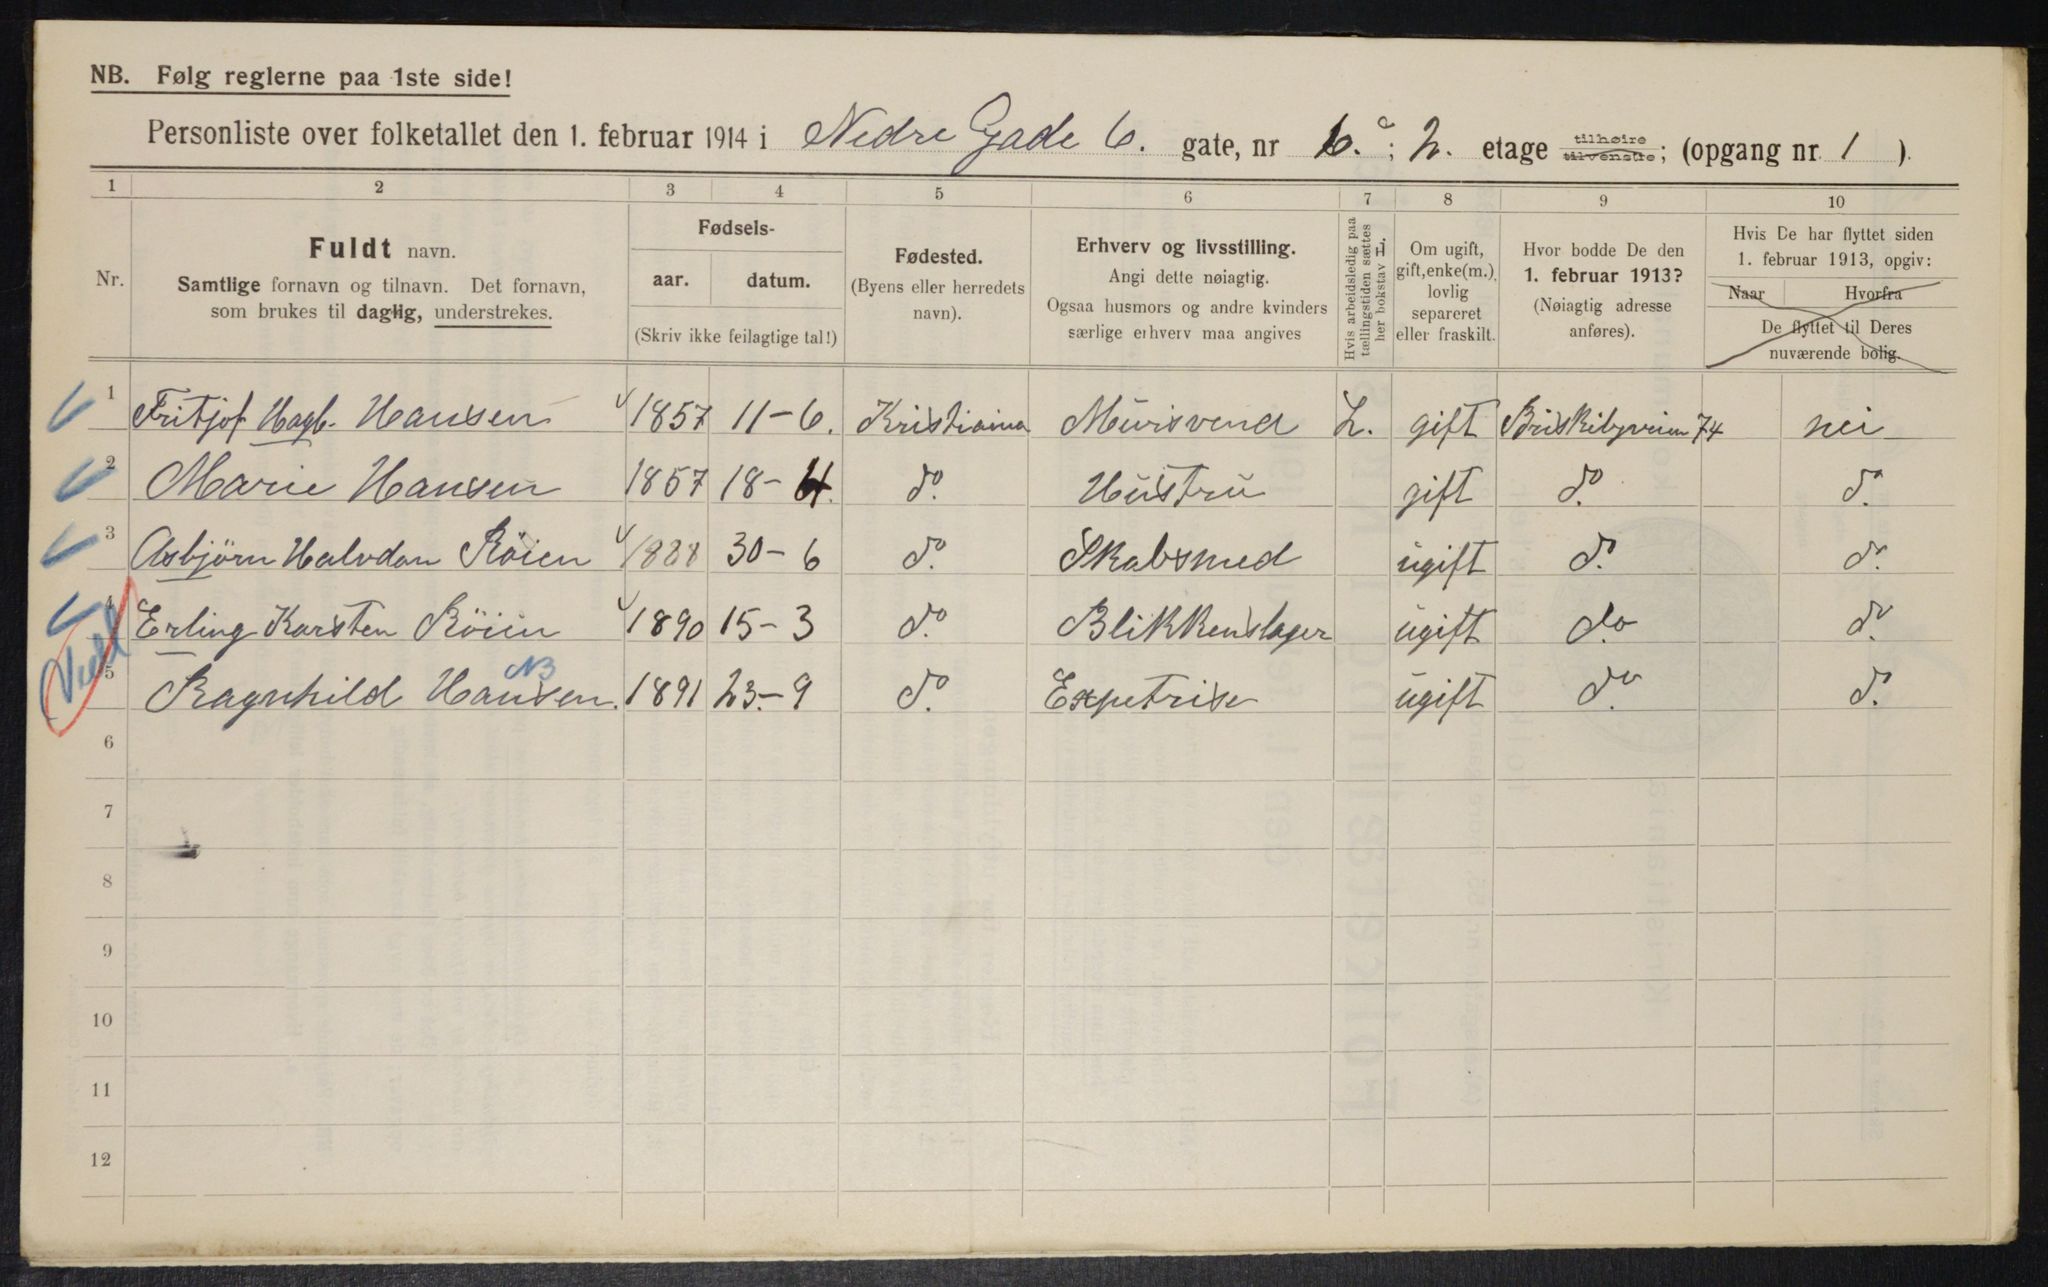 NB. Følg reglerne paa 1ste side!
Personliste over folketallet den 1. februar 1914 i Nedre Gade 6. gate, nr 6. c; 2. etage tilhøire tilvenstre; (opgang nr. 1 ).
1 2 3 4 5 6 7 8 9 10
Nr.
Fuldt navn.
Samtlige fornavn og tilnavn. Det fornavn,
som brukes til daglig, understrekes.
Fødsels-
aar. datum.
(Skriv ikke feilagtige tal!)
Fødested.
(Byens eller herredets
navn).
Erhverv og livsstilling.
Angi dette nøiagtig.
Ogsaa husmors og andre kvinders
særlige erhverv maa angives
Hvis arbeidsledig paa
tællingstiden sættes
her bokstav L.
Om ugift,
gift, enke(m.),
lovlig
separeret
eller fraskilt.
Hvor bodde De den
1. februar 1913?
(Nøiagtig adresse
anføres).
Hvis De har flyttet siden
1. februar 1913, opgiv:
Naar Hvorfra
De flyttet til Deres
nuværende bolig.
1 Fritjof Hagb. Hansen 1857 11-6. Kristiania Mursvend L. gift Briskibyveien 74 nei
2 Marie Hansen 1857 18-4. do. Hustru gift do. do.
3 Asbjörn Halvdan Röien 1888 30-6 do. Skabsmed ugift do. do.
4 Erling Karsten Röien 1890 15-3 do. Blikkenslager ugift do. do.
NB
5 Ragnhild Hansen. 1891 23.-9 do. Expetrise ugift do. do.
6
7
8
9
10
11
12